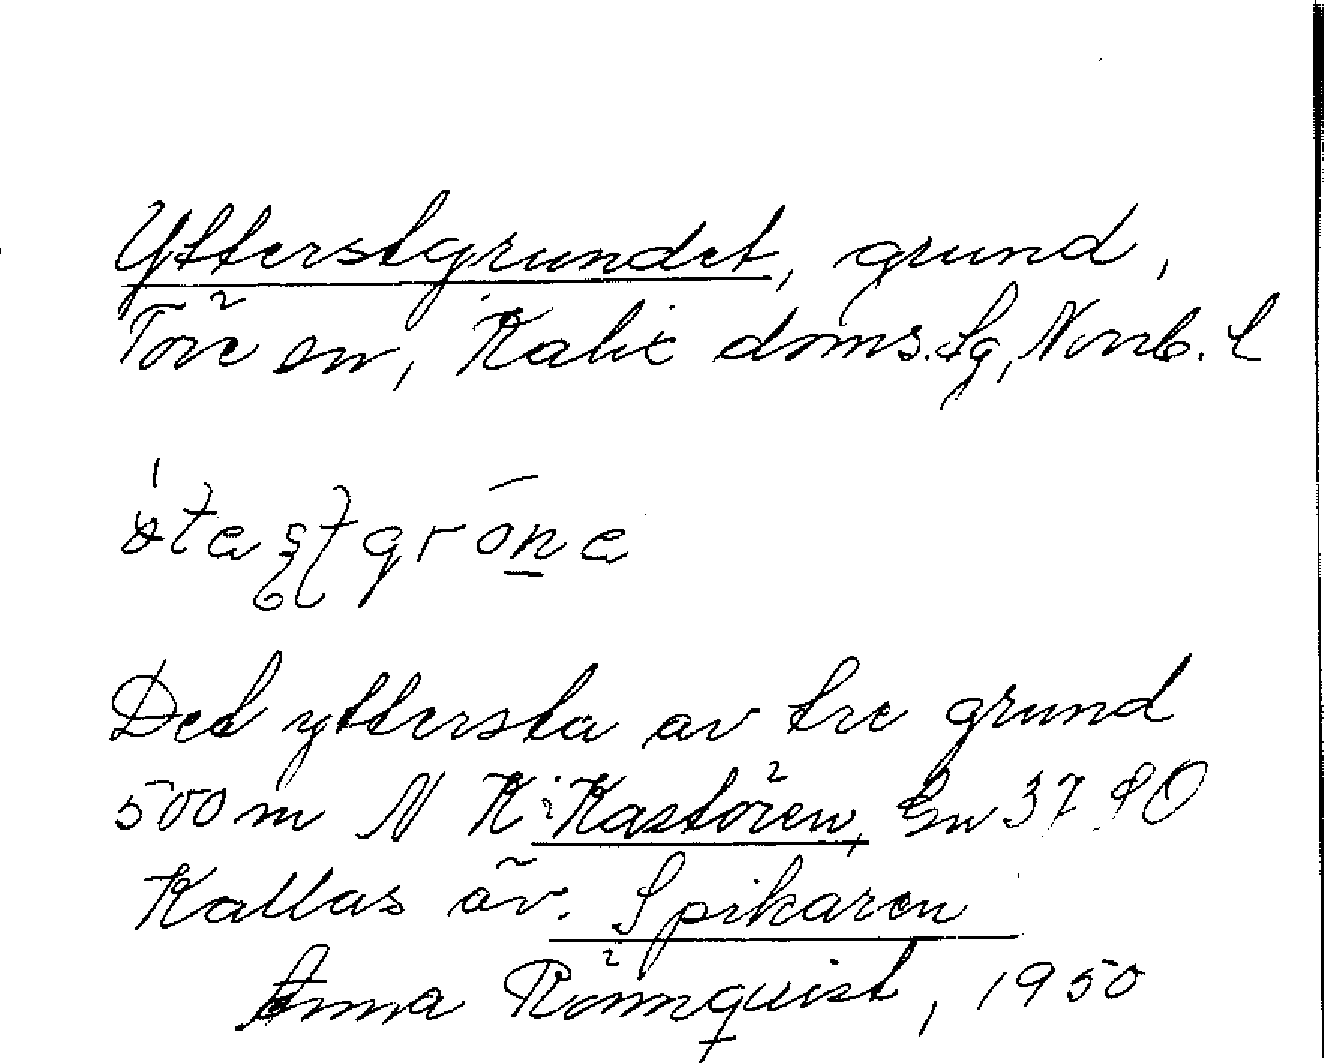 Ytterstgrundet, grund,
Töre sn, Kalix doms. sg, Norrb. l
Det yttersta av tre grund
500 m N K: Kastören, Gn 37 80
Kallas äv. Spikaren
Anna Rönnquist, 1950